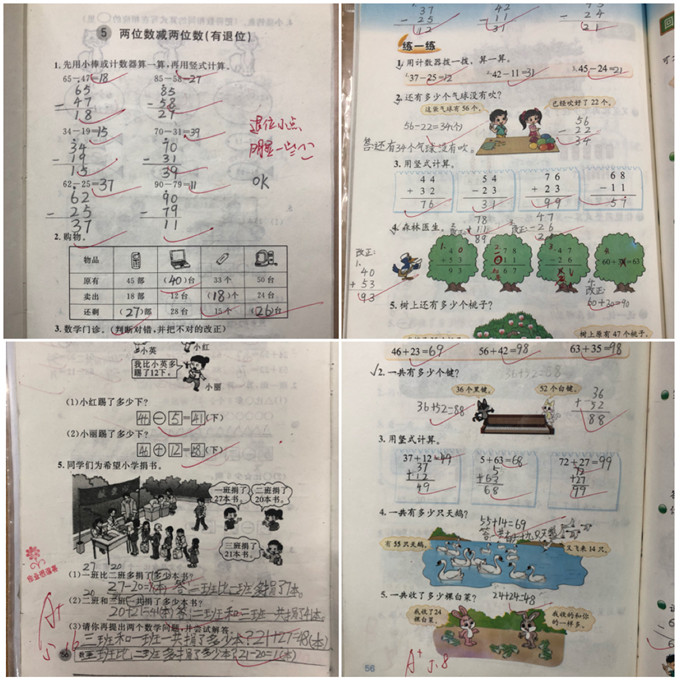 5 两位数减两位数(有退位)
1.先用小棒或计数器算一算,再用竖式计算。
65-47=18 85-58=27
65 85
- 47 - 58
18 27
34-19=15 70-31=39
34 70
- 19 - 31
15 39
62-25=37 90-79=11
62 90
- 25 - 79
37 11
退位小点
明显一些
OK
2.购物。
物品
原有 45部 (40)台 33个 50台
卖出 18部 12台 (18)个 24台
还剩 (27)部 28台 15个 (26)台
3.数学门诊。(判断对错,并把不对的改正)
37 42 45
- 25 - 11 - 24
12 31 21
练一练
1.用计数器拨一拨,算一算。
37-25=12 42-11=31 45-24=21
2.还有多少个气球没有吹?
这些气球有56个。 已经吹好了22个。
56-22=34(个)
56
- 22
34
答:还有34个气球没有吹。
3.用竖式计算。
44 54 76 68
+ 32 - 23 + 23 - 11
76 31 99 57
4.森林医生。
改正:
1.
40
+ 53
93
78
+ 11
89
47
- 26
60+30=90
5.树上还有多少个桃子?
树上原有47个桃子。
小英 小红
我比小英多踢了12下。
小丽
(1)小红踢了多少下?
46-5=41(下)
(2)小丽踢了多少下?
46+12=58(下)
5.同学们为希望小学捐书。
一班捐了27本书。
二班捐了20本书。
三班捐了21本书。
27 20
(1)一班比二班多捐了多少本书?
27-20=7(本) 答:一班比二班多捐了7本。
(2)二班和三班一共捐了多少本书?
20+21=41(本) 答:二班和三班一共捐了41本。
(3)请你再提出两个数学问题,并尝试解答。
三班和一班一共捐了多少本?21+27=48(本)
三班比二班多捐了多少本?21-20=1(本)
A+
56
46+23=69 56+42=98 63+35=98
2.一共有多少个键?
36个黑键。 52个白键。
36+52=88
36
+ 52
88
3.用竖式计算。
37+12=49 5+63=68 72+27=99
37 5 72
+12 +63 +27
49 68 99
4.一共有多少只天鹅?
55+14=69
有55只天鹅。 又飞来14只。
5.一共收了多少棵白菜?
24+24=48
我收了24棵白菜。
我收的和你的一样多。
56
A+